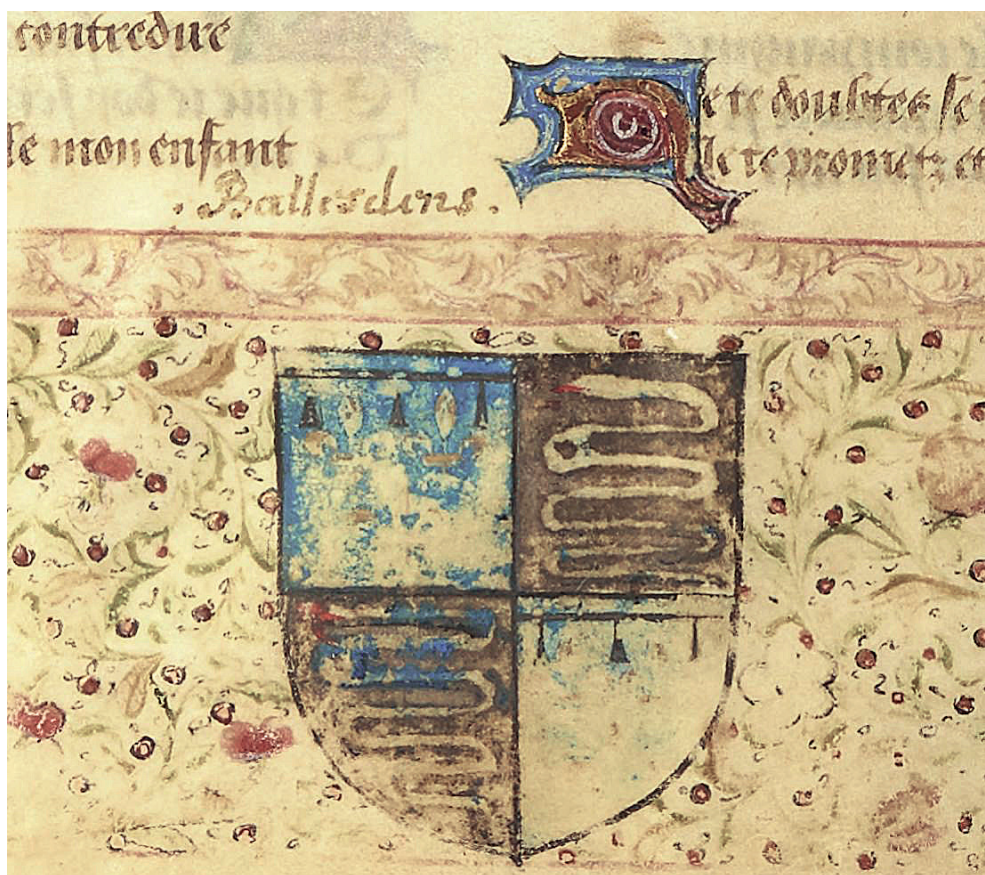 contredire
de mon enfant
. Ballesdens .
Ne te doubtes se
Je te prometz et